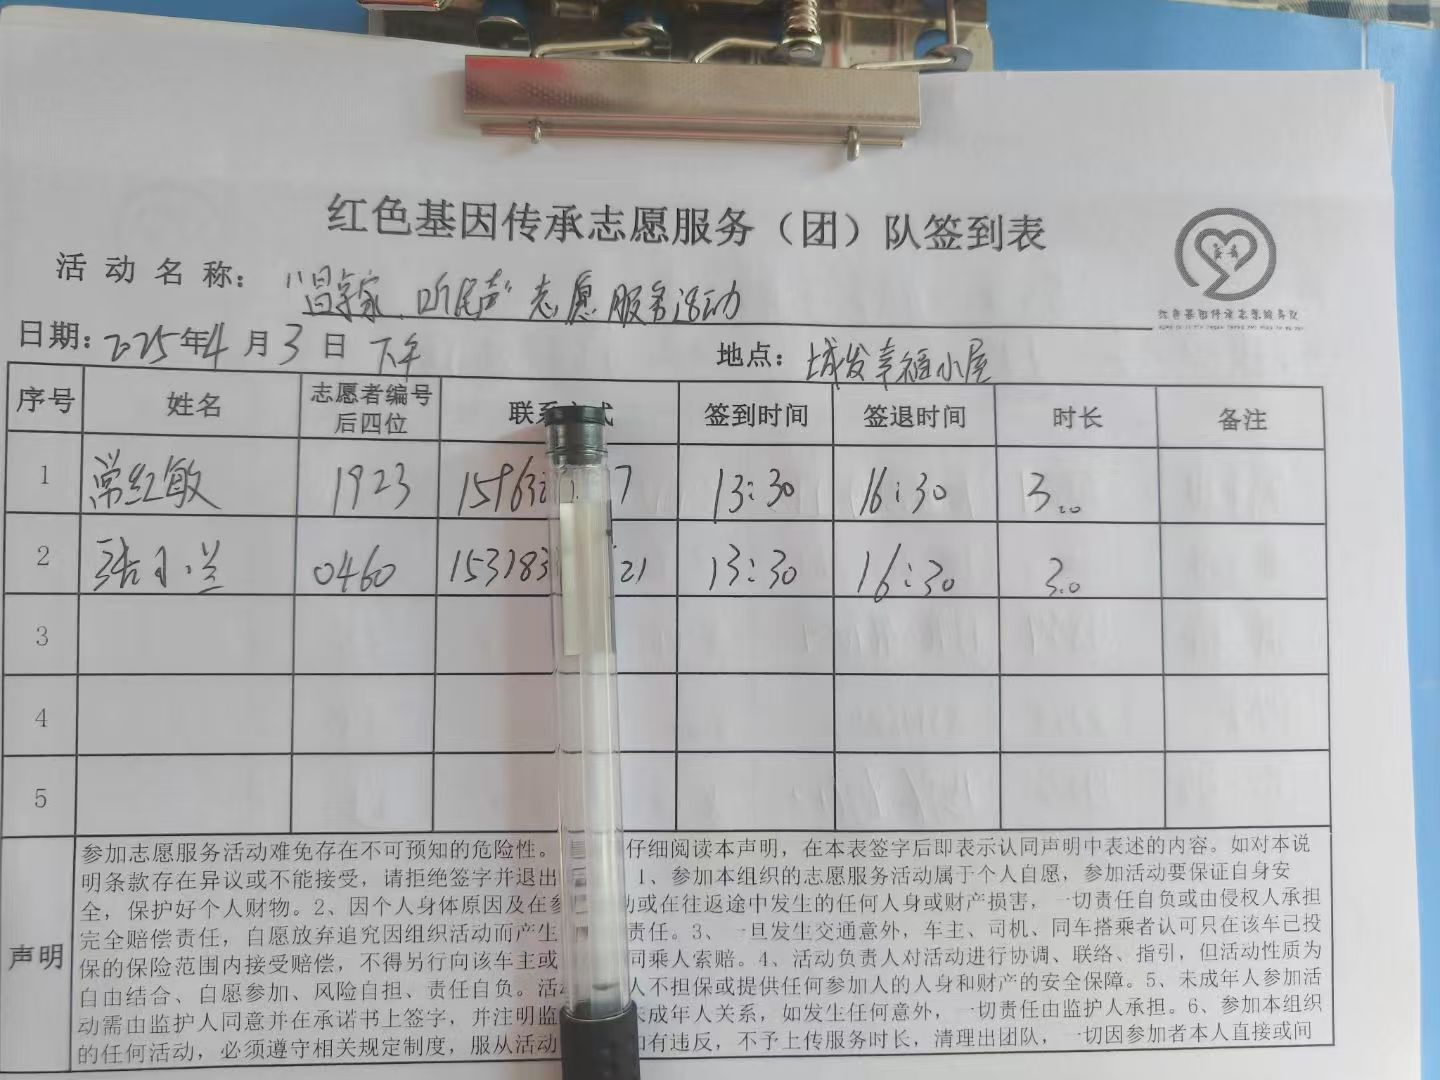 红色基因传承志愿服务（团）队签到表
活动名称： 志愿服务活动
日期：2025年4月3日下午 地点：城发幸福小屋
序号 姓名 志愿者编号后四位 联系 式 签到时间 签退时间 时长 备注
1 常红敏 1923 15963 7 13:30 16:30 3.0
2 张小兰 0460 153183 21 13:30 16:30 3.0
3
4
5
声明
参加志愿服务活动难免存在不可预知的危险性。 仔细阅读本声明，在本表签字后即表示认同声明中表述的内容。如对本说
明条款存在异议或不能接受，请拒绝签字并退出 1、参加本组织的志愿服务活动属于个人自愿，参加活动要保证自身安
全，保护好个人财物。2、因个人身体原因及在参 动或在往返途中发生的任何人身或财产损害，一切责任自负或由侵权人承担
完全赔偿责任，自愿放弃追究因组织活动而产生 责任。3、一旦发生交通意外，车主、司机、同车搭乘者认可只在该车已投
保的保险范围内接受赔偿，不得另行向该车主或 同乘人索赔。4、活动负责人对活动进行协调、联络、指引，但活动性质为
自由结合、自愿参加、风险自担、责任自负。活动 人不担保或提供任何参加人的人身和财产的安全保障。5、未成年人参加活
动需由监护人同意并在承诺书上签字，并注明监 未成年人关系，如发生任何意外，一切责任由监护人承担。6、参加本组织
的任何活动，必须遵守相关规定制度，服从活动 如有违反，不予上传服务时长，清理出团队，一切因参加者本人直接或间